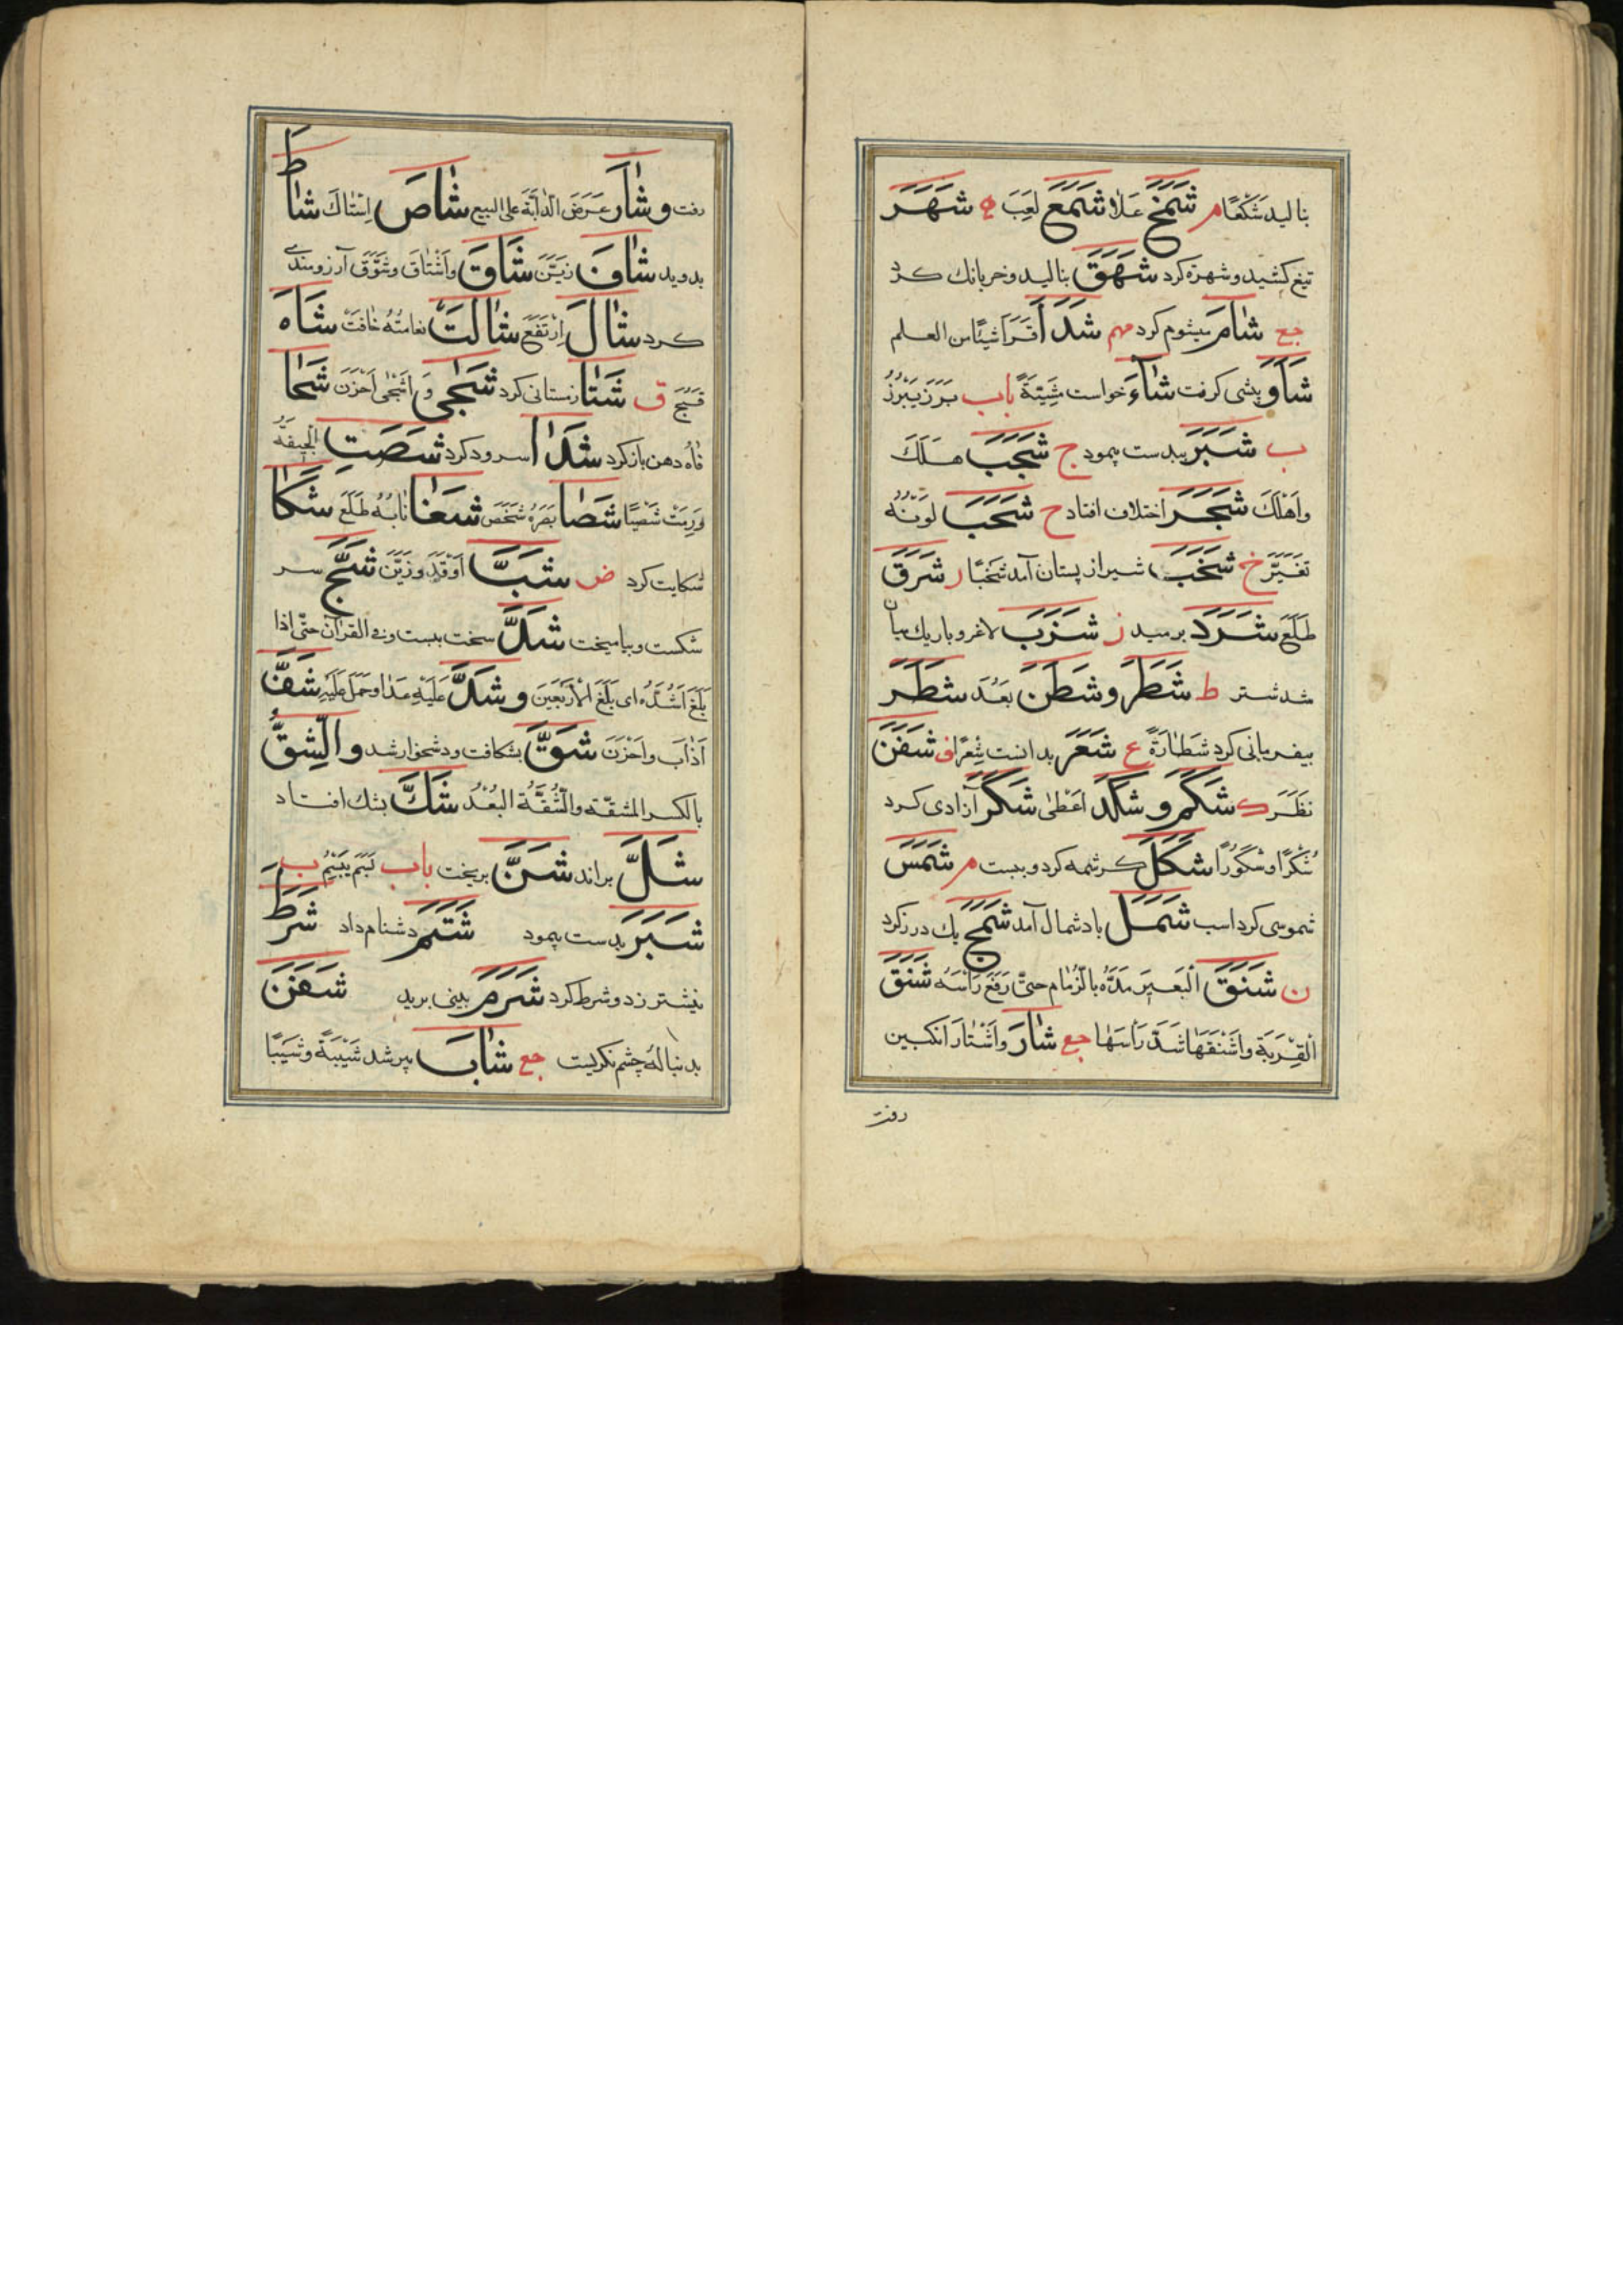 بنالید شَكَعًا م شَمَخَ عَلَا شَمَعَ لَعِبَ ه شَهَرَ
تیغ کشید و شهره کرد شَهَقَ بنالید و خر بانك کرد
جع شَامَ میشوم کرد مهم شَدَا قَرَأَ شيئًا من العلم
شَاوَ پیشی کرفت شَاءَ خواست مَشِيَّةً باب بَرَزَ يَبْرُزُ
ب شَبَرَ ببدست پیمود ج شَجَبَ هَلَكَ
وَاَهْلَكَ شَجَرَ اختلاف افتاد ح شَحَبَ لَوْنُهُ
تَغَيَّرَ خ شَخَبَ شیر از پستان آمد شَخْبًا ر شَرَقَ
طَلَعَ شَرَدَ برمید ز شَزَبَ لاغر و باریك میان
شد شتر ط شَطَرَ و شَطَنَ بَعُدَ شَطَرَ
بیفرمانی کرد شَطَارَةً ع شَعَرَ بدانست شِعْرًا ف شَفَنَ
نَظَرَ ك شَكَمَ و شَكَدَ اَعْطٰى شَكَرَ آزادی کرد
شُكْرًا و شُكُورًا شَكَلَ کرشمه کرد و ببست م شَمَسَ
شموسی کرد اسب شَمَلَ باد شمال آمد شَمَجَ بك درز کرد
ن شَنَقَ الْبَعِيرَ مَدَّهُ بالزِّمَام حتّى رَفَعَ رَأْسَهُ شَنَقَ
الْقِرْبَةَ واَشْنَقَهَا شَدَّ رَأْسَهَا جع شَارَ واَشْتَارَ انكبین
رفت
رفت و شَارَ عَرَضَ الدَّابَّةَ على البيع شَاصَ اِسْتَاكَ شَاطَ
بدوید شَافَ زَيَّنَ شَاقَ وَاَشْتَاقَ و شَوَّقَ آرزومندی
کرد شَالَ اِرْتَفَعَ شَالَتْ نعامتُهُ خَافَتْ شَاهَ
قَبُحَ ق شَتَا زمستانی کرد شَجٰى وَ اَشْجٰى اَحْزَنَ شَحَا
فَاهُ دهن باز کرد شَدَا سرود کرد شَصَتِ الْجِيفَةُ
وَرِمَتْ شُصِيًّا شَصَا بَصَرُهُ شَخَصَ شَغَا نَابُهُ طَلَعَ شَكَا
شکایت کرد ض شَبَّ اَوْقَدَ و زَيَّنَ شَجَّ سر
شکست و بیامیخت شَدَّ سخت ببست وفى القرآن حتّى اذا
بَلَغَ اَشُدَّهُ اى بَلَغَ الْاَرْبَعِينَ و شَدَّ عَلَيْهِ عَدَا و حَمَلَ عَلَيْهِ شَفَّ
اَذَابَ و اَحْزَنَ شَقَّ بشکافت و دشخوار شد و الشِّقُّ
بالكسر المشقّة والشُّقَّة البُعْدُ شَكَّ بشك افتاد
شَلَّ براند شَنَّ بریخت باب بَتَمَ يَبْتِمُ ب
شَبَرَ بدست پیمود شَتَمَ دشنام داد شَرَطَ
نیشتر زد و شرط کرد شَرَمَ بینی برید شَفَنَ
بدنبالهٔ چشم نکریست جع شَابَ پیر شد شَيْبَةً و شَيْبًا